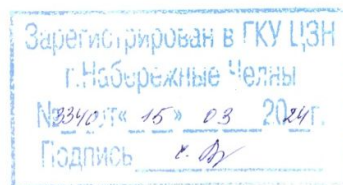 Зарегистрирован в ГКУ ЦЗН
г.Набережные Челны
№3340 от« 15 » 03 2024г.
Подпись